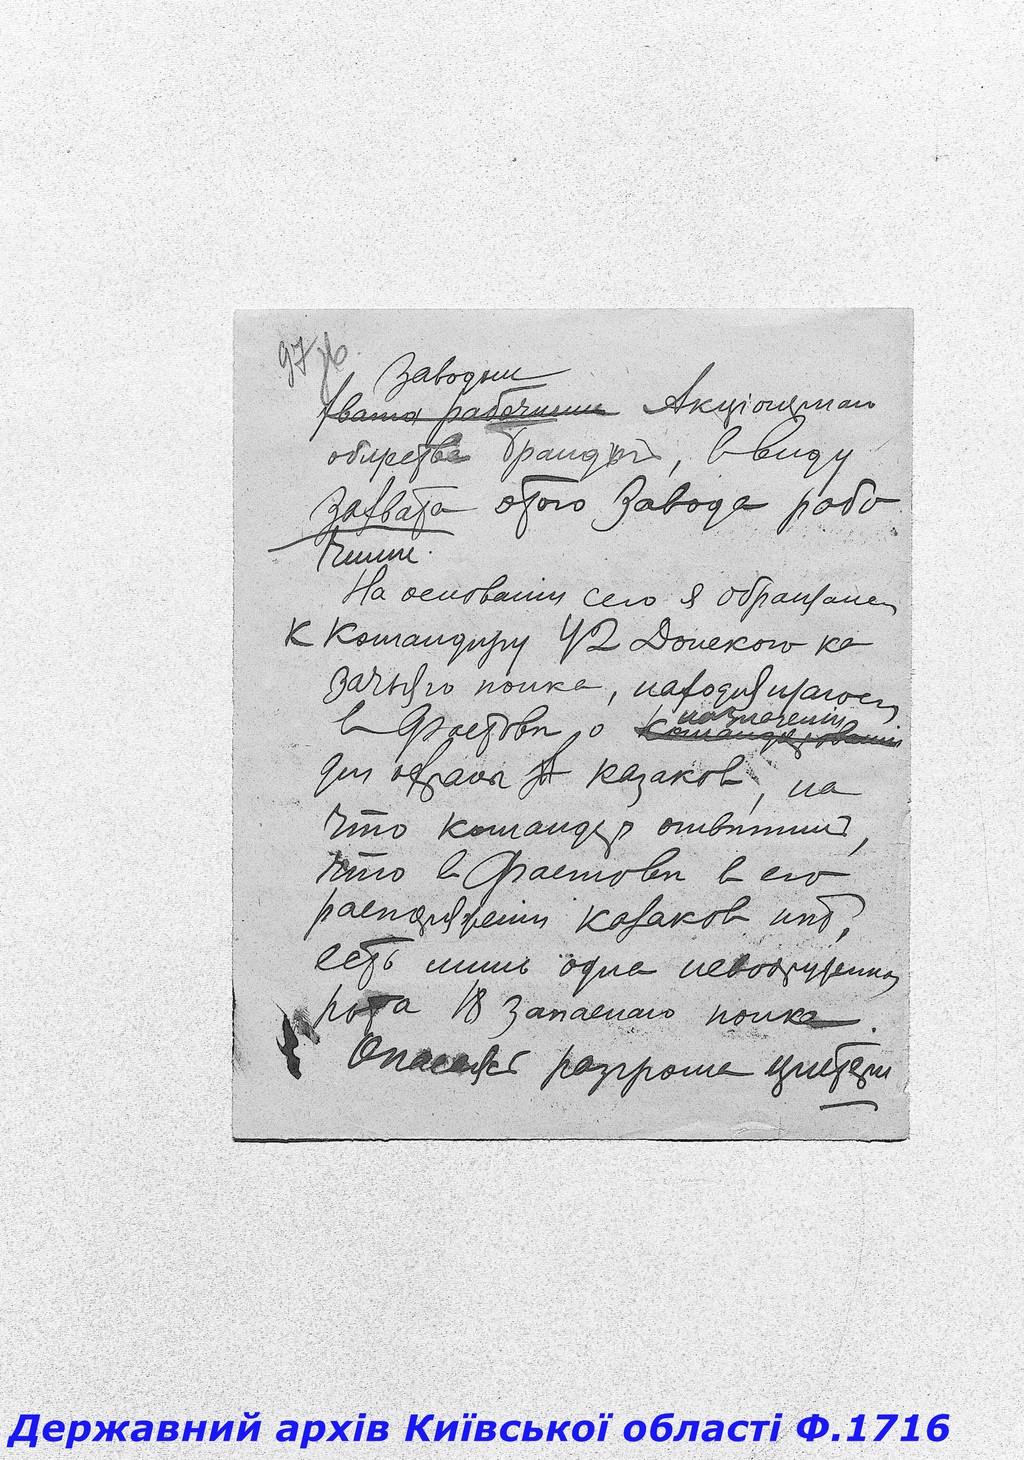 97 зв.
Заводом
вата рабочими Акціонернаго
общества Брандт, в виду
захвата этого Завода рабо
чими.
На основаніи сего я обращался
к Командиру 42 Донского ка
зачьяго полка, находящагося
в Фастове о назначеніи
командированіи
для охраны казаков, на
что командир ответил,
что в Фастове в его
распоряженіи козаков нет,
есть лишь одна невооруженная
рота 18 Запаснаго полка.
Опасаясь разгрома цистерн
Державний архів Київської області Ф.1716